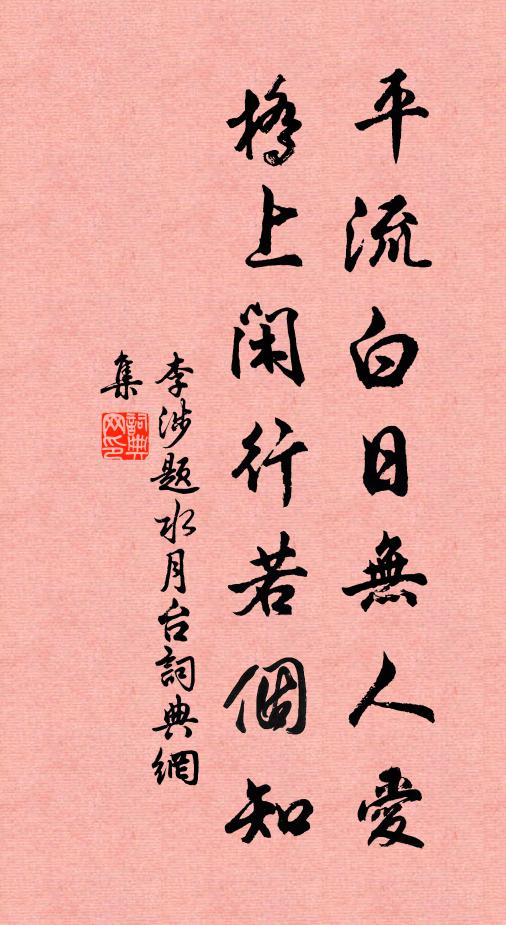 平流白日無人愛
橋上閑行若個知
李涉题水月台詞典網
集
詞典
网印